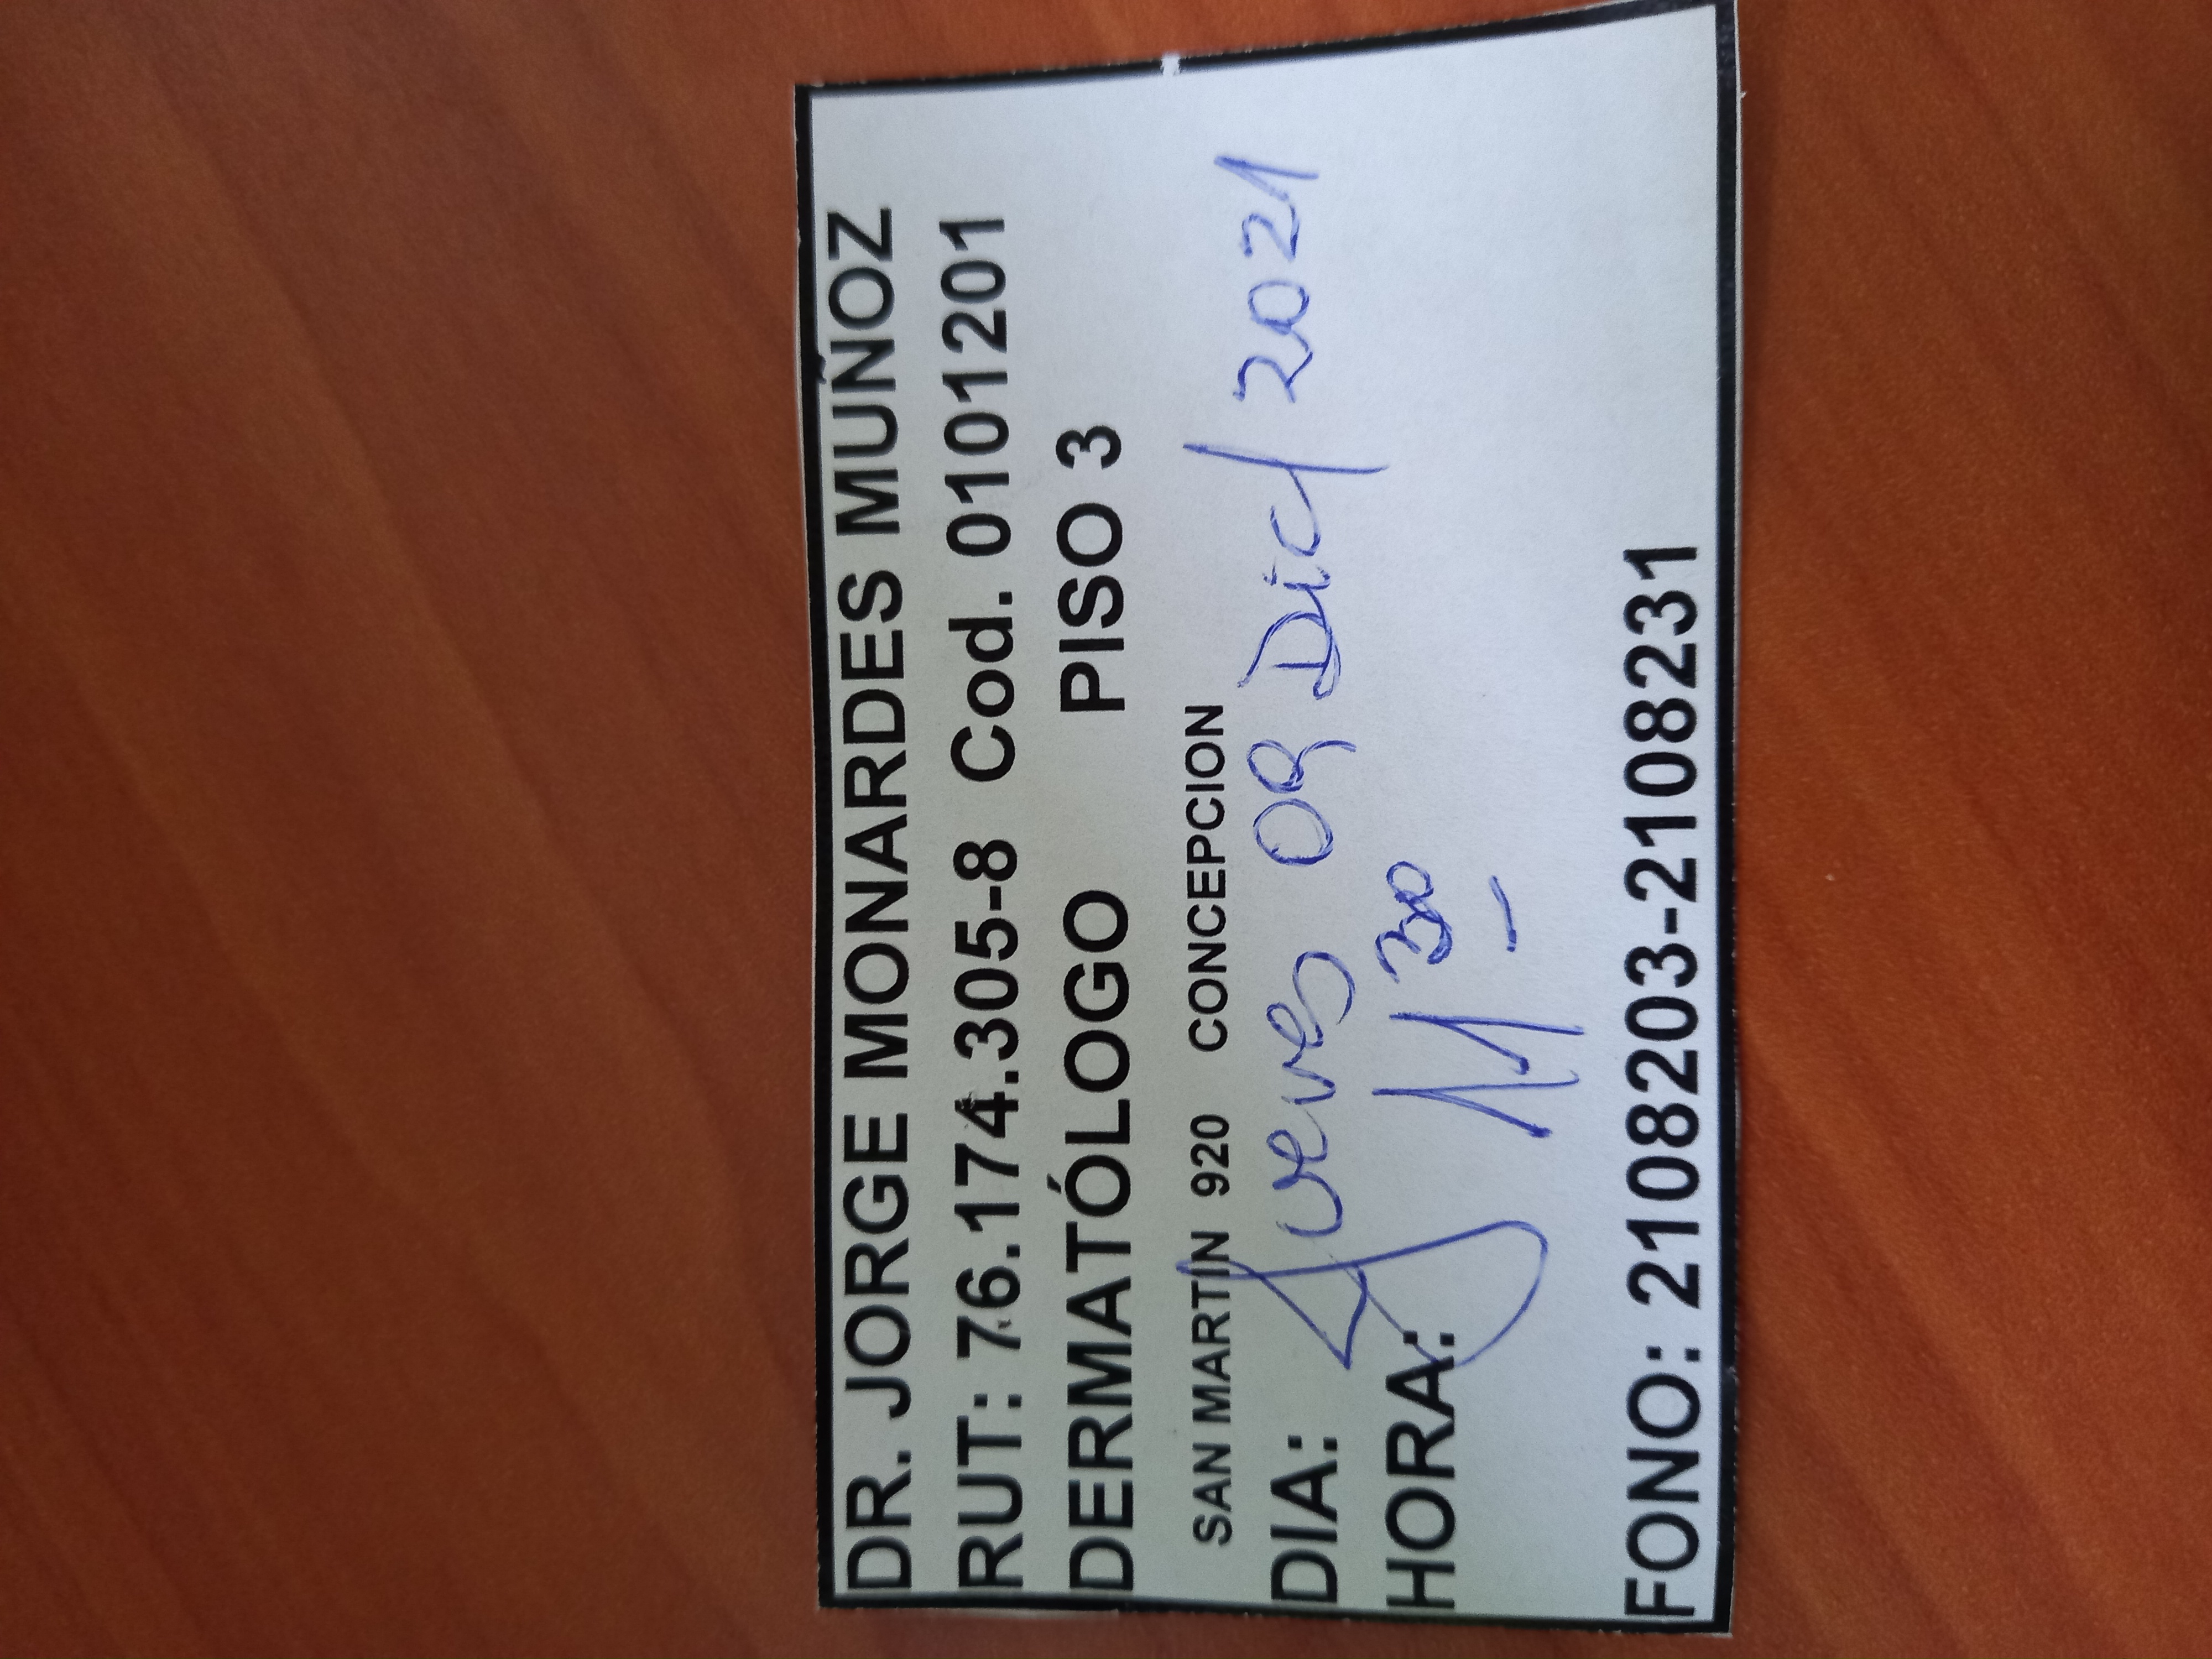 DR. JORGE MONARDES MUÑOZ
RUT: 76.174.305-8 Cod. 0101201
DERMATÓLOGO PISO 3
SAN MARTIN 920 CONCEPCION
DIA: Jueves 09 Dic/ 2021
HORA: 11 30
FONO: 2108203-2108231